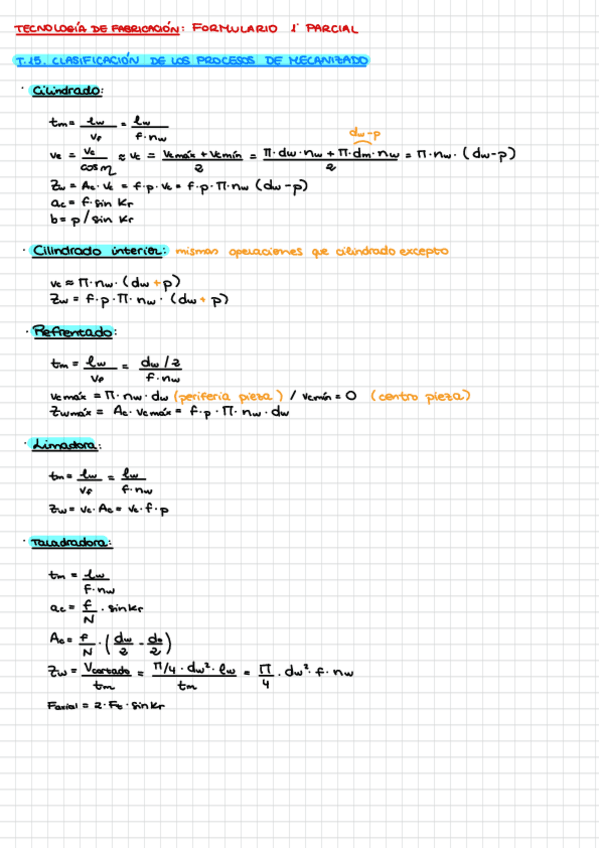 TECNOLOGÍA DE FABRICACIÓN: FORMULARIO 1º PARCIAL
T.15. CLASIFICACIÓN DE LOS PROCESOS DE MECANIZADO
· Cilindrado:
tm = lw / vf = lw / f·nw
dw-p
ve = vc / cos η ≈ vc = vcmáx + vcmín / 2 = π·dw·nw + π·dm·nw / 2 = π·nw·(dw-p)
Zw = Ac·vc = f·p·vc = f·p·π·nw (dw-p)
ac = f·sin Kr
b = p / sin Kr
· Cilindrado interior: mismas operaciones que cilindrado excepto
vc ≈ π·nw·(dw + p)
Zw = f·p·π·nw·(dw + p)
· Refrentado:
tm = lw / vf = dw/2 / f·nw
vcmáx = π·nw·dw (periferia pieza) / vcmín = 0 (centro pieza)
Zwmáx = Ac·vcmáx = f·p·π·nw·dw
· Limadora:
tm = lw / vf = lw / f·nw
Zw = vc·Ac = vc·f·p
· Taladradora:
tm = lw / f·nw
ac = f / N · sin Kr
Ac = f / N · (dw / 2 - do / 2)
Zw = Vcortado / tm = π/4·dw²·lw / tm = π / 4 · dw²·f·nw
Faxial = 2·Ft·sin Kr